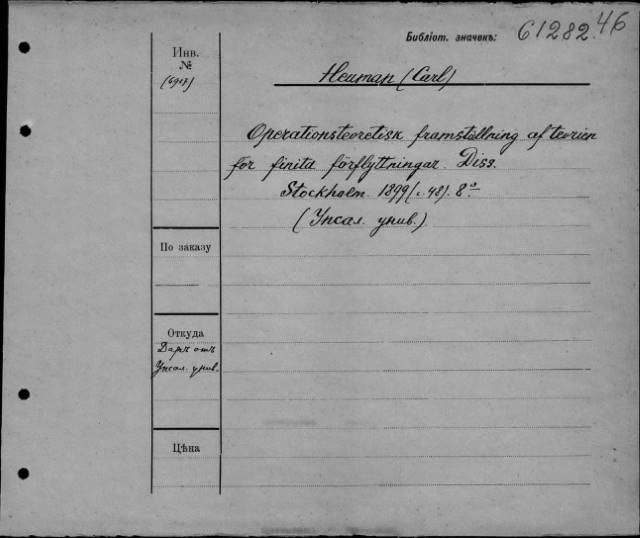 Библіот. значекъ: 61282.46
Инв.
№
(6917)
Heuman (Carl)
Operationsteoretisk framställning af teorien
för finita förflyttningar. Diss.
Stockholm 1899 (с. 48). 8°
(Упсал. унив.)
По заказу
Откуда
Даръ отъ
Упсал. унив.
Цѣна